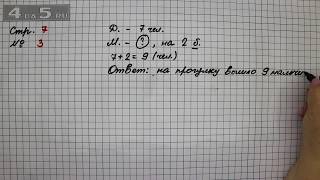 4 да 5 RU
Стр. 7
№ 3
Д. - 7 чел.
М. - ?, на 2 б.
7+2=9 (чел.)
Ответ: на прогулку вышло 9 мальчи